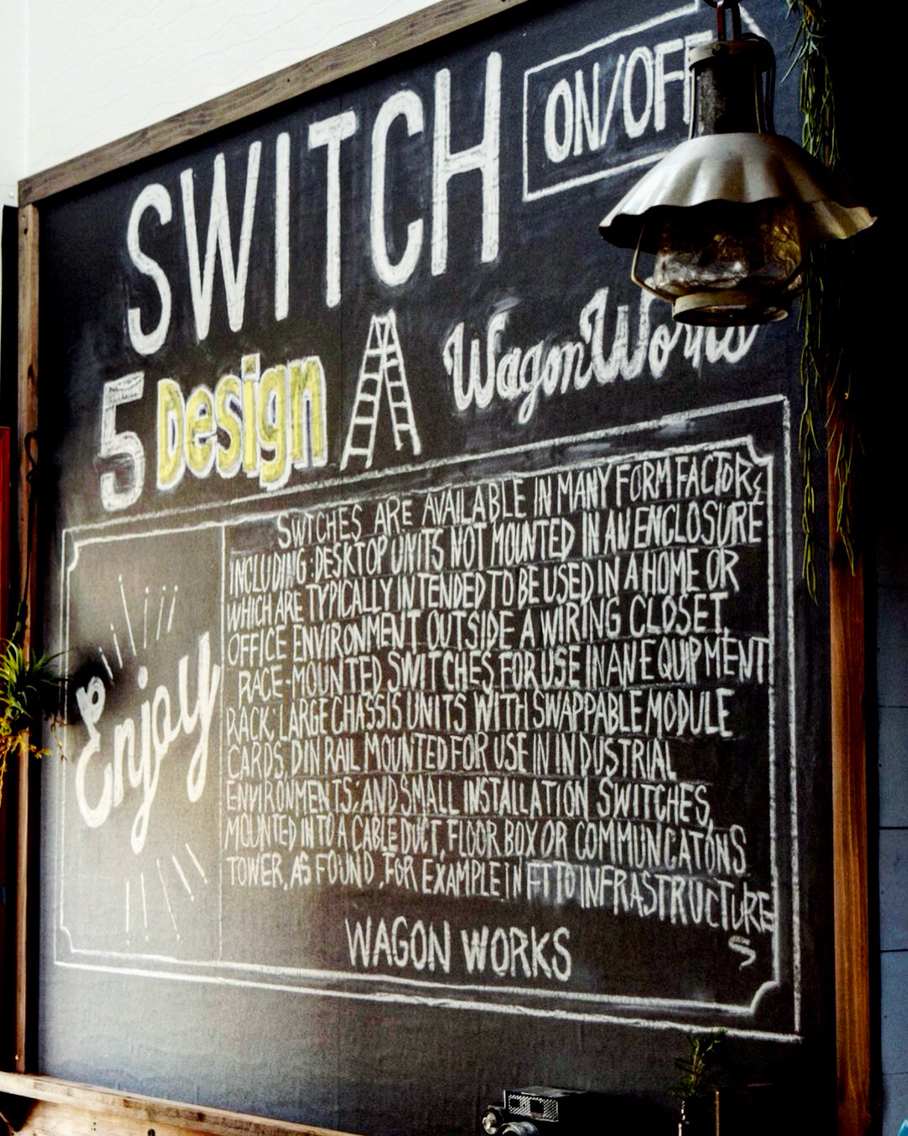 SWITCH
ON/OFF
5 Design
WagonWorks
Enjoy
SWTCHES ARE AVAILABLE IN MANY FORM FACTORS
INCLUDING: DESKTOP UNITS NOT MOUNTED IN AN ENCLOSURE
WHICH ARE TYPICALLY INTENDED TO BE USED IN A HOME OR
OFFICE ENVIRONMENT OUTSIDE A WIRING CLOSET
RACE-MOUNTED SWITCHES FOR USE IN AN E QUIPMENT
RACK; LARGE CHASSIS UNITS WITH SWAPPABLE MODULE
CARDS, DIN RAIL MOUNTED FOR USE IN INDUSTRIAL
ENVIRONMENTS; AND SMALL INSTALLATION SWITCHES,
MOUNTED INTO A CABLE DUCT, FLOOR BOX OR COMMUNCATONS
TOWER, AS FOUND, FOR EXAMPLE IN FTTO INFRASTRUCTURE
S
WAGON WORKS